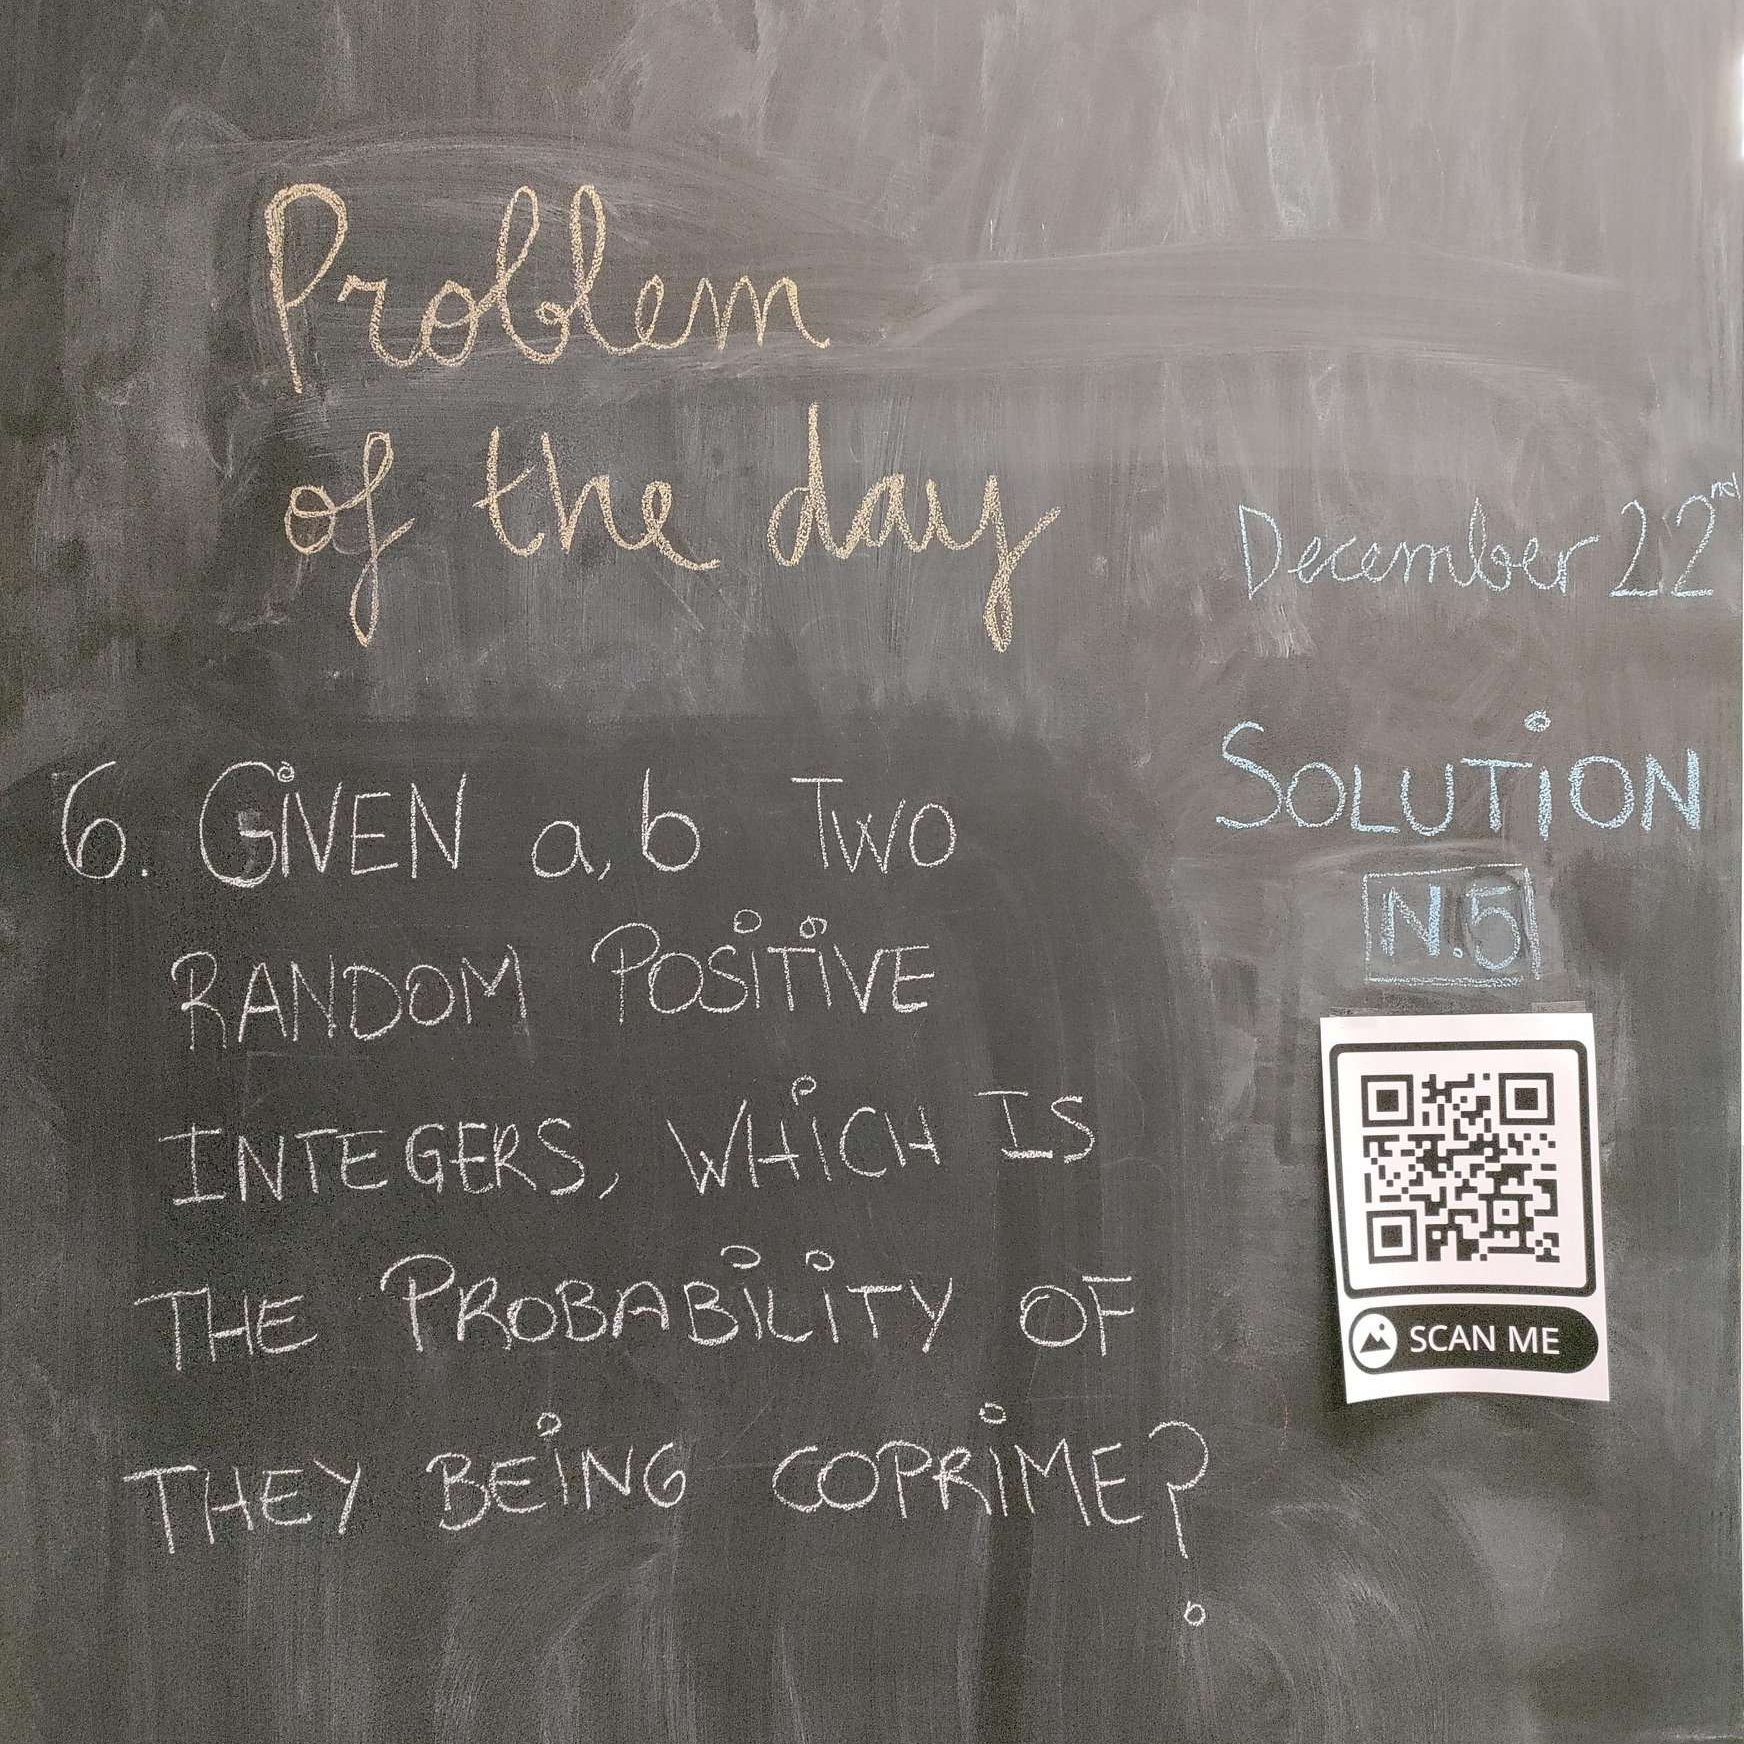 Problem
of the day
December 22nd
6. GIVEN a, b TWO
RANDOM POSITIVE
INTEGERS, WHICH IS
THE PROBABILITY OF
THEY BEING COPRIME?
SOLUTION
N.5
SCAN ME